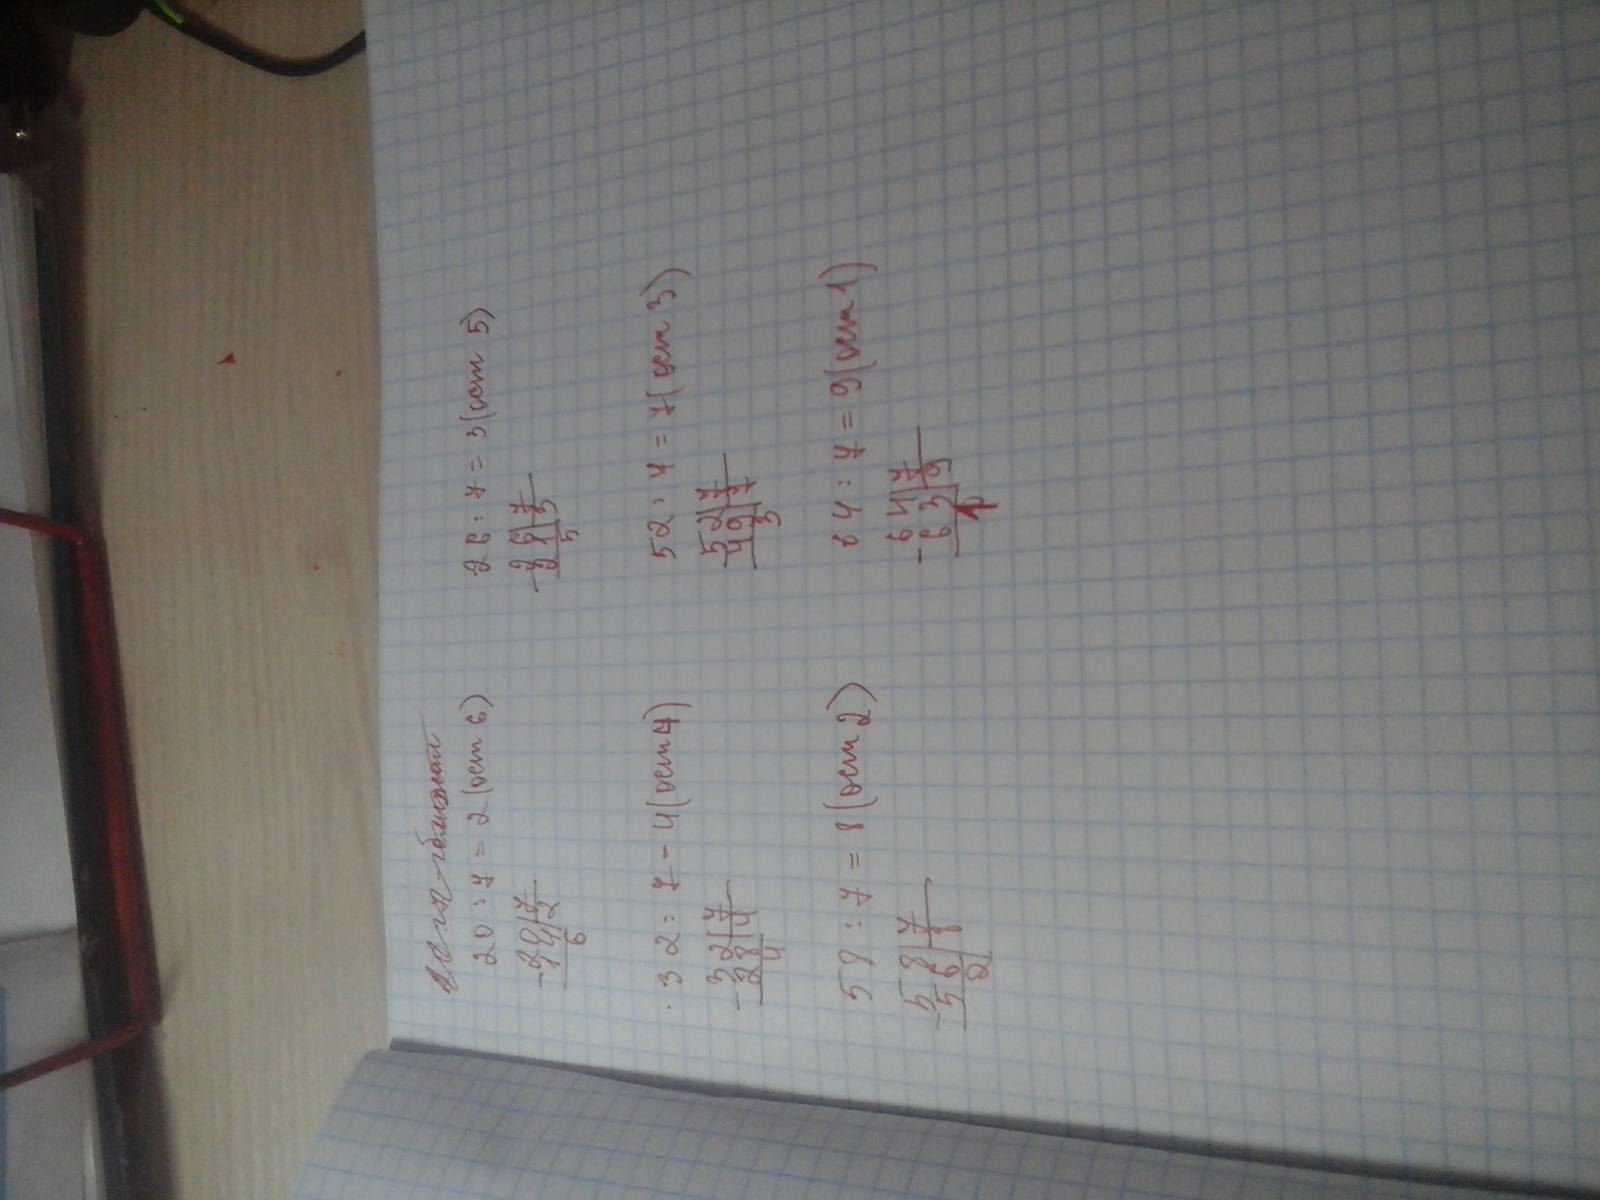 20 : 7 = 2 (ост 6)
26 : 7 = 3 (ост 5)
-20|7
14|2
6
-26|7
21|3
5
32 : 7 - 4 (ост 4)
52 : 7 = 7 (ост 3)
-32|7
28|4
4
-52|7
49|7
3
58 : 7 = 8 (ост 2)
64 : 7 = 9 (ост 1)
-58|7
56|8
2
-64|7
63|9
1